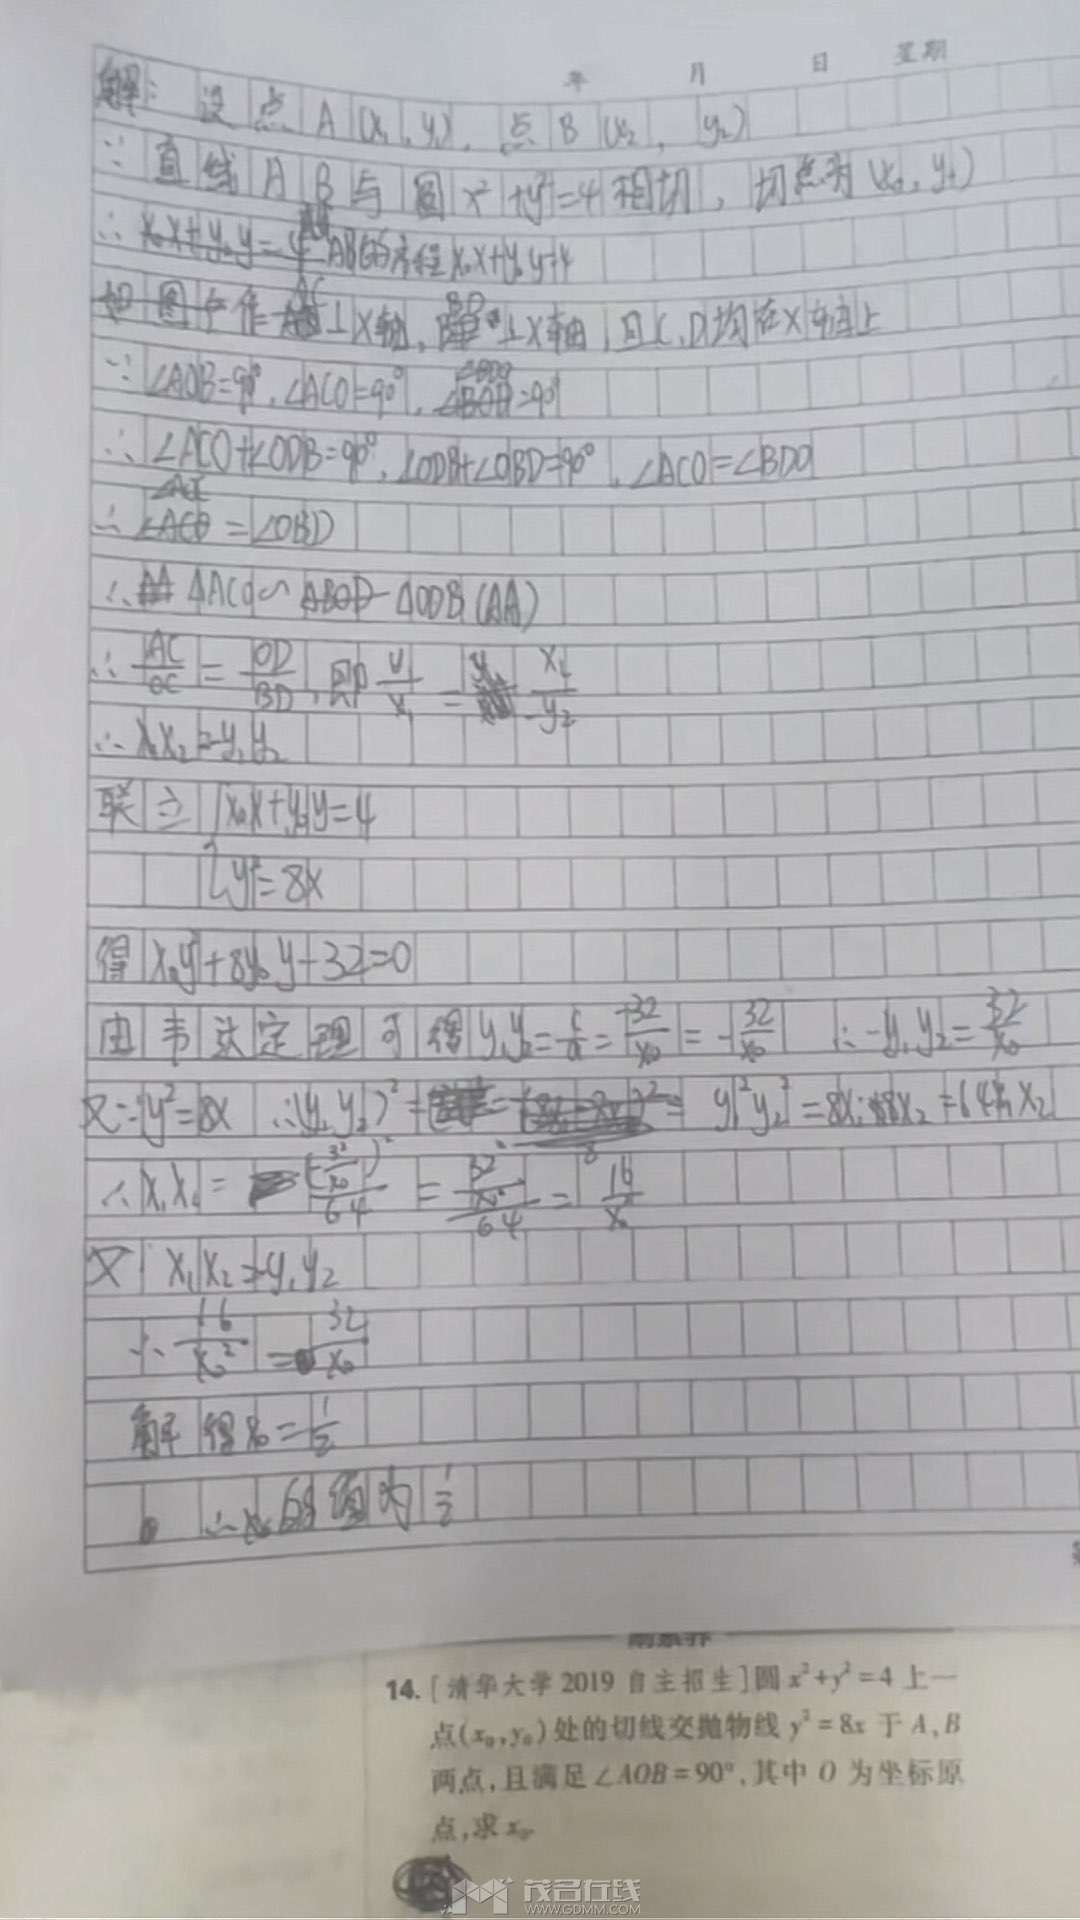 年 月 日 星期
解: 设点A(x₁,y₁),点B(x₂,y₂)
∵直线AB与圆x²+y²=4相切,切点为(x₀,y₀)
∴ AB的方程x₀x+y₀y=4
作AC⊥x轴,BD⊥x轴,且C,D均在x轴上
∵∠AOB=90°,∠ACO=90°,∠BDO=90°
∴∠ACO+∠ODB=90°,∠ODB+∠OBD=90°,∠ACO=∠BDO
∴ =∠OBD
∴△ACO∽△ODB(AA)
∴AC/OC=OD/BD,即y₁/x₁=x₂/-y₂
∴x₁x₂=-y₁y₂
联立{x₀x+y₀y=4
{y²=8x
得x₀y²+8y₀y-32=0
由韦达定理可得y₁y₂=c/a=-32/x₀=-32/x₀ ∴-y₁y₂=32/x₀
又∵y²=8x ∴(y₁y₂)²= y₁²y₂²=8x₁·8x₂=64x₁x₂
∴x₁x₂=
又x₁x₂=-y₁y₂
∴16/x₀²=32/x₀
解得x₀=1/2
∴x₀的值为1/2
14.[清华大学2019自主招生]圆x²+y²=4上一
点(x₀,y₀)处的切线交抛物线y²=8x于A,B
两点,且满足∠AOB=90°,其中O为坐标原
点,求x₀.
茂名在线
WWW.GDMM.COM